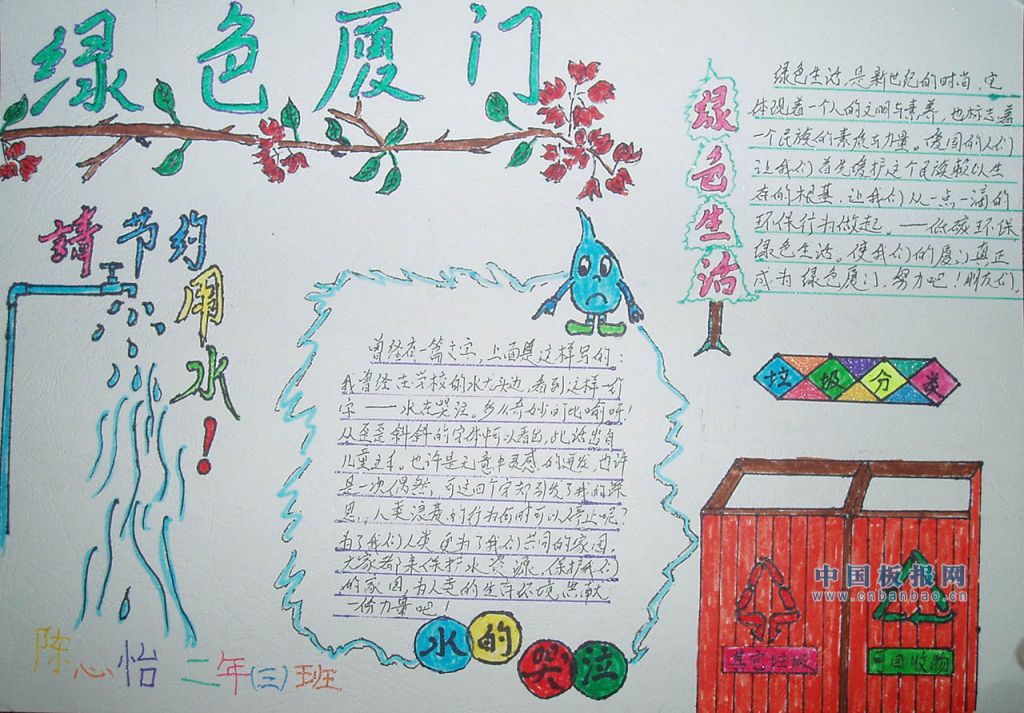 绿色厦门
请节约用水！
绿色生活
绿色生活,是新世纪的时尚,它
体现着一个人的文明与素养,也标志着
一个民族的素质与力量。爱国的人们
让我们首先爱护这个民族赖以生
存的根基,让我们从一点一滴的
环保行为做起。——低碳环保
绿色生活。使我们的厦门真正
成为绿色厦门,努力吧!朋友们,
曾经在一篇文字,上面是这样写的:
我曾经在学校的水龙头边,看到这样一行
字——水在哭泣。多么奇妙的比喻呀!
从歪歪斜斜的字体中可以看出,此话出自
儿童之手。也许是无意中灵感的迸发,也许
是一次偶然,可这四个字却引发了我的深
思。人类浪费的行为何时可以停止呢?
为了我们人类 更为了我们共同的家园,
大家都来保护水资源,保护我们
的家园,为人类的生存环境贡献
一份力量吧!
水的哭泣
垃圾分类
其它垃圾
可回收物
中国板报网
www.cnbanbao.cn
陈心怡 二年(三)班